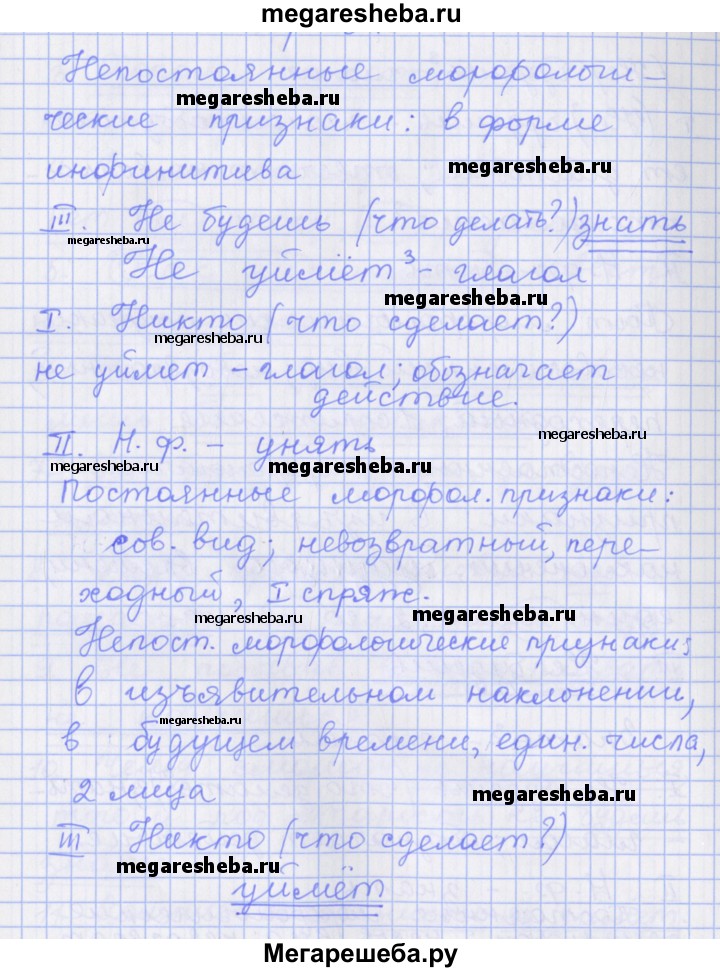 megaresheba.ru
Непостоянные морфологи-
megaresheba.ru
ческие признаки: в форме
инфинитива
megaresheba.ru
III. Не будешь (что делать?) знать
megaresheba.ru
Не уймёт³ - глагол
megaresheba.ru
I. Никто (что сделает?)
megaresheba.ru
не уймет - глагол; обозначает
действие.
megaresheba.ru
II. Н. ф. - унять
megaresheba.ru
megaresheba.ru
Постоянные морфол. признаки:
сов. вид; невозвратный, пере-
ходный, I спряж.
megaresheba.ru
Непост. морфологические признаки:
в изъявительном наклонении,
megaresheba.ru
в будущем времени, един. числа,
2 лица
megaresheba.ru
III Никто (что сделает?)
megaresheba.ru
уймёт
Мегарешеба.ру